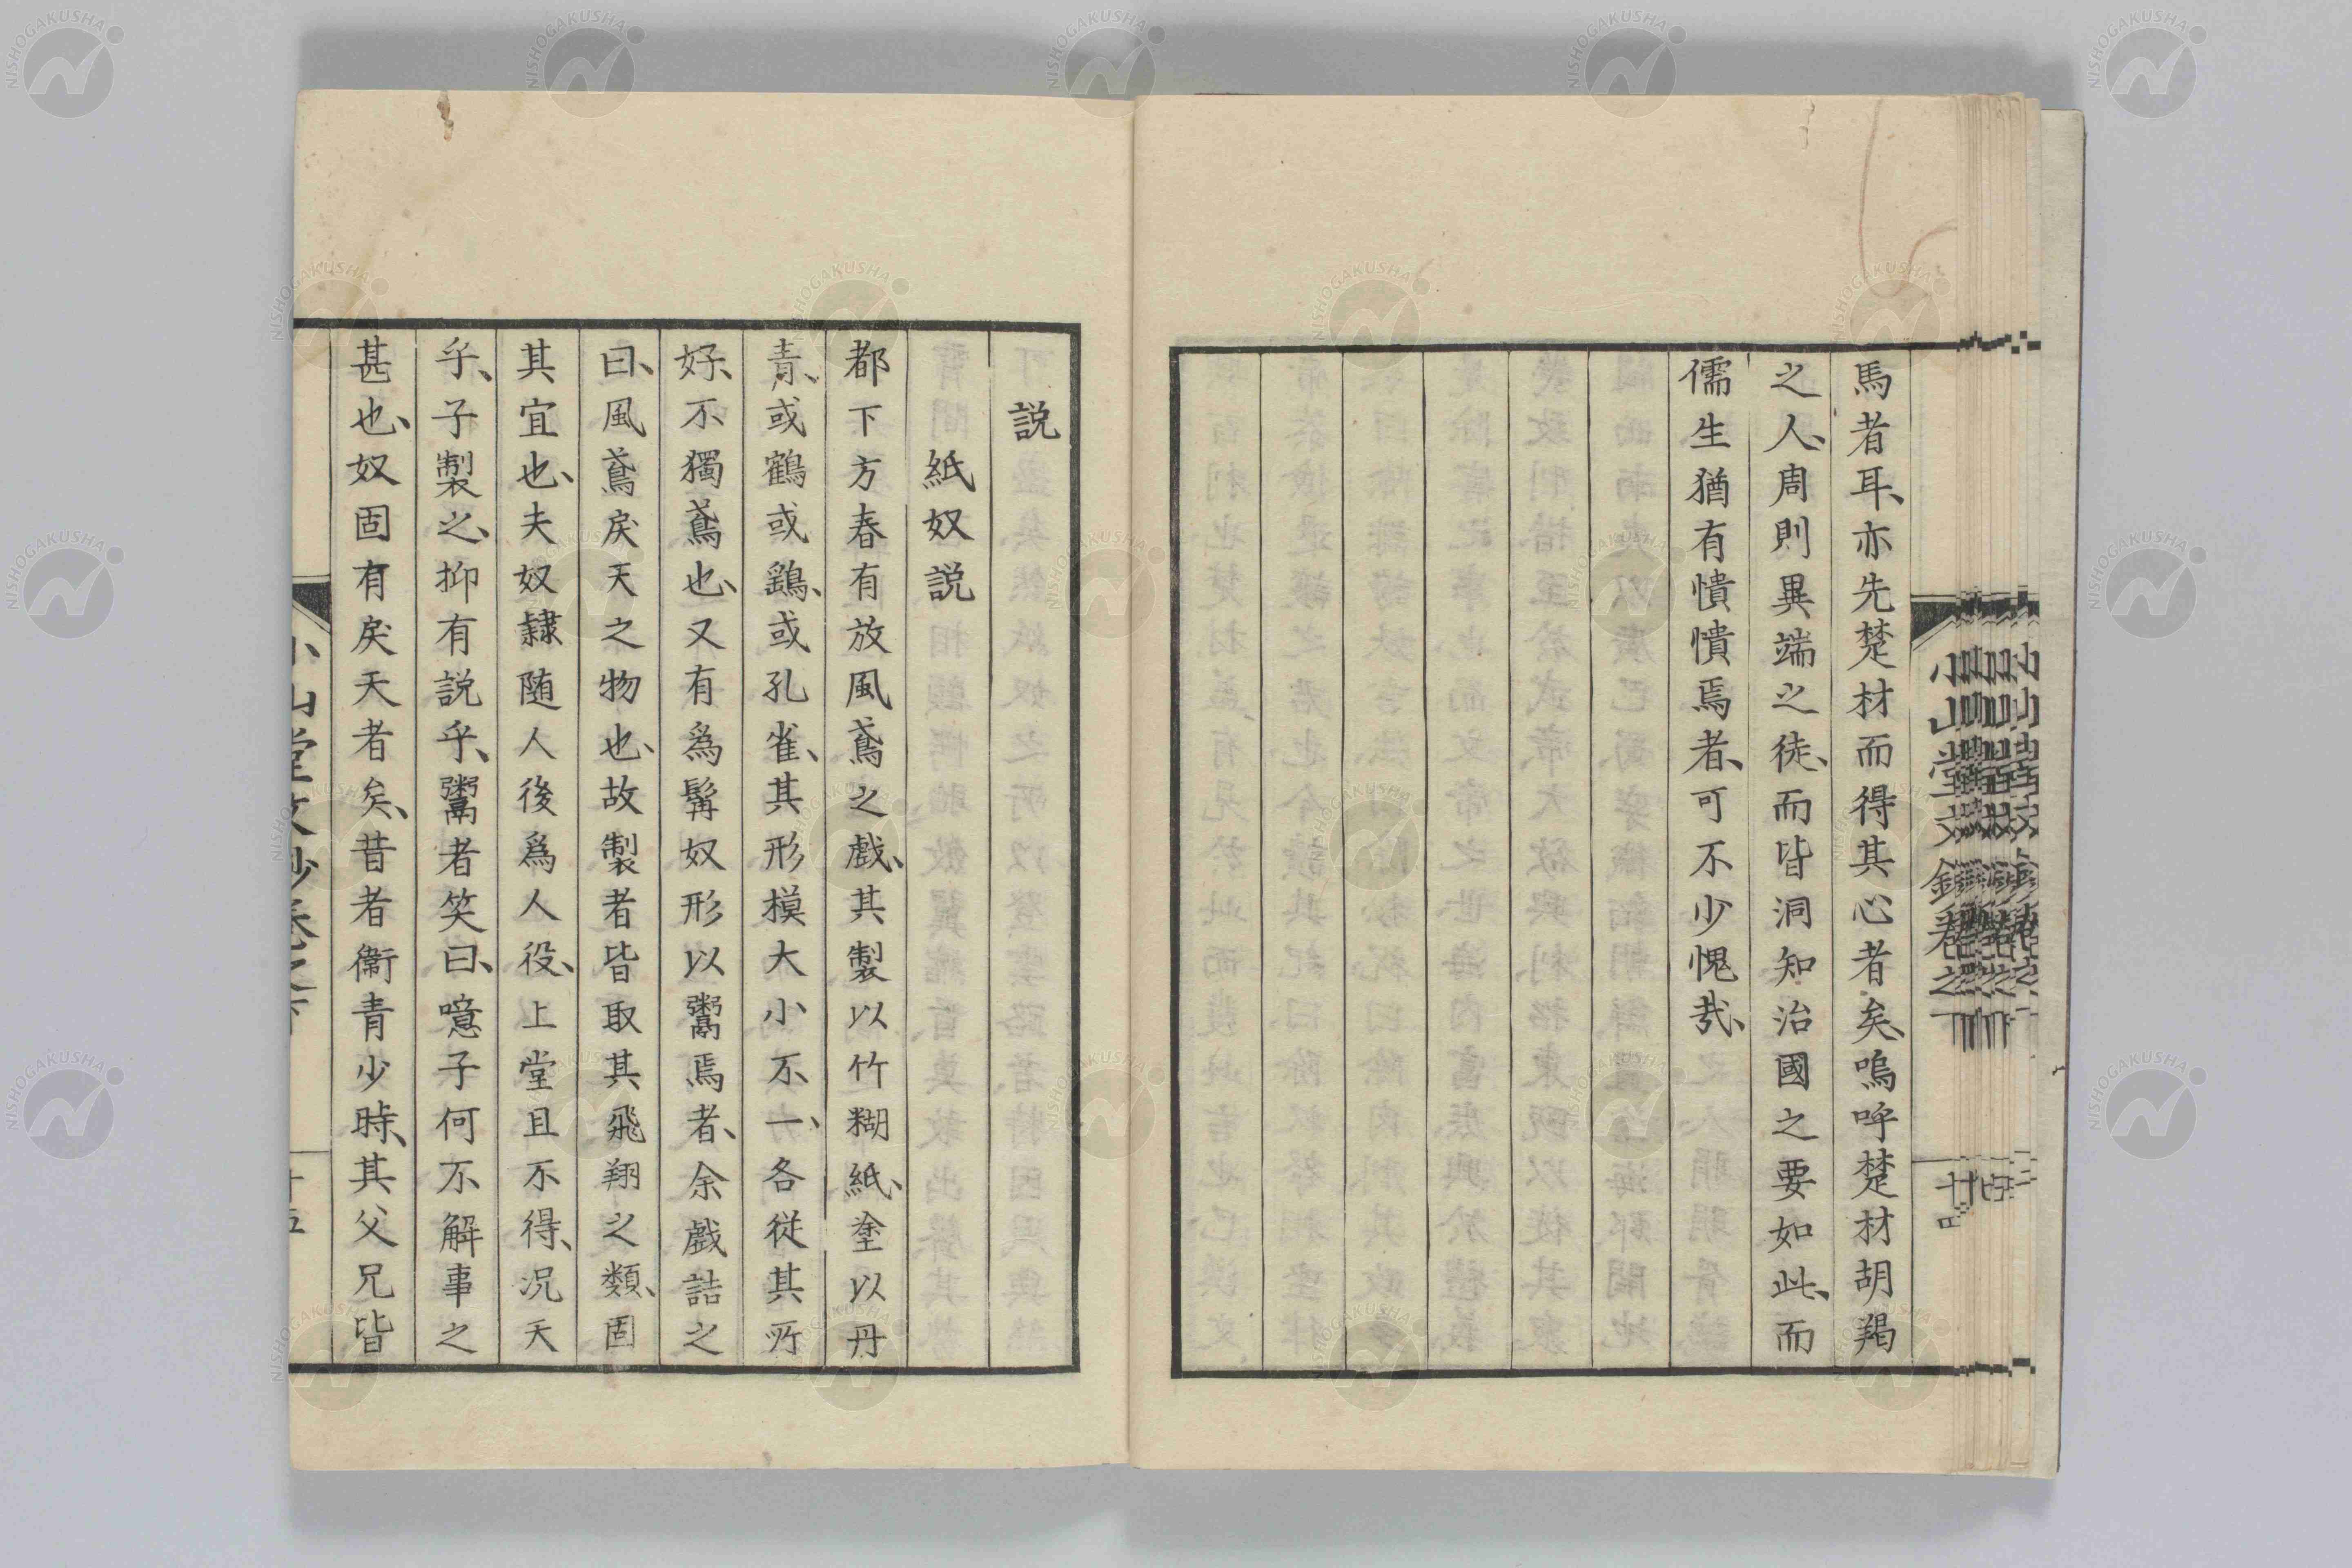 馬者耳、亦先楚材而得其心者矣、嗚呼楚材胡羯
之人、周則異端之徒、而皆洞知治國之要如此、而
儒生猶有憒憒焉者、可不少愧哉、
小山堂文鈔卷之下
廿四
説
紙奴説
都下方春有放風鳶之戲、其製以竹糊紙、塗以丹
青、或鶴或鷄、或孔雀、其形模大小不一、各従其所
好、不獨鳶也、又有爲髯奴形以鬻焉者、余戲詰之
曰、風鳶戾天之物也、故製者皆取其飛翔之類、固
其宜也、夫奴隷随人後爲人役、上堂且不得、况天
乎、子製之、抑有説乎、鬻者笑曰、噫子何不解事之
甚也、奴固有戾天者矣、昔者衞青少時、其父兄皆
小山堂文鈔卷之下
NISHOGAKUSHA